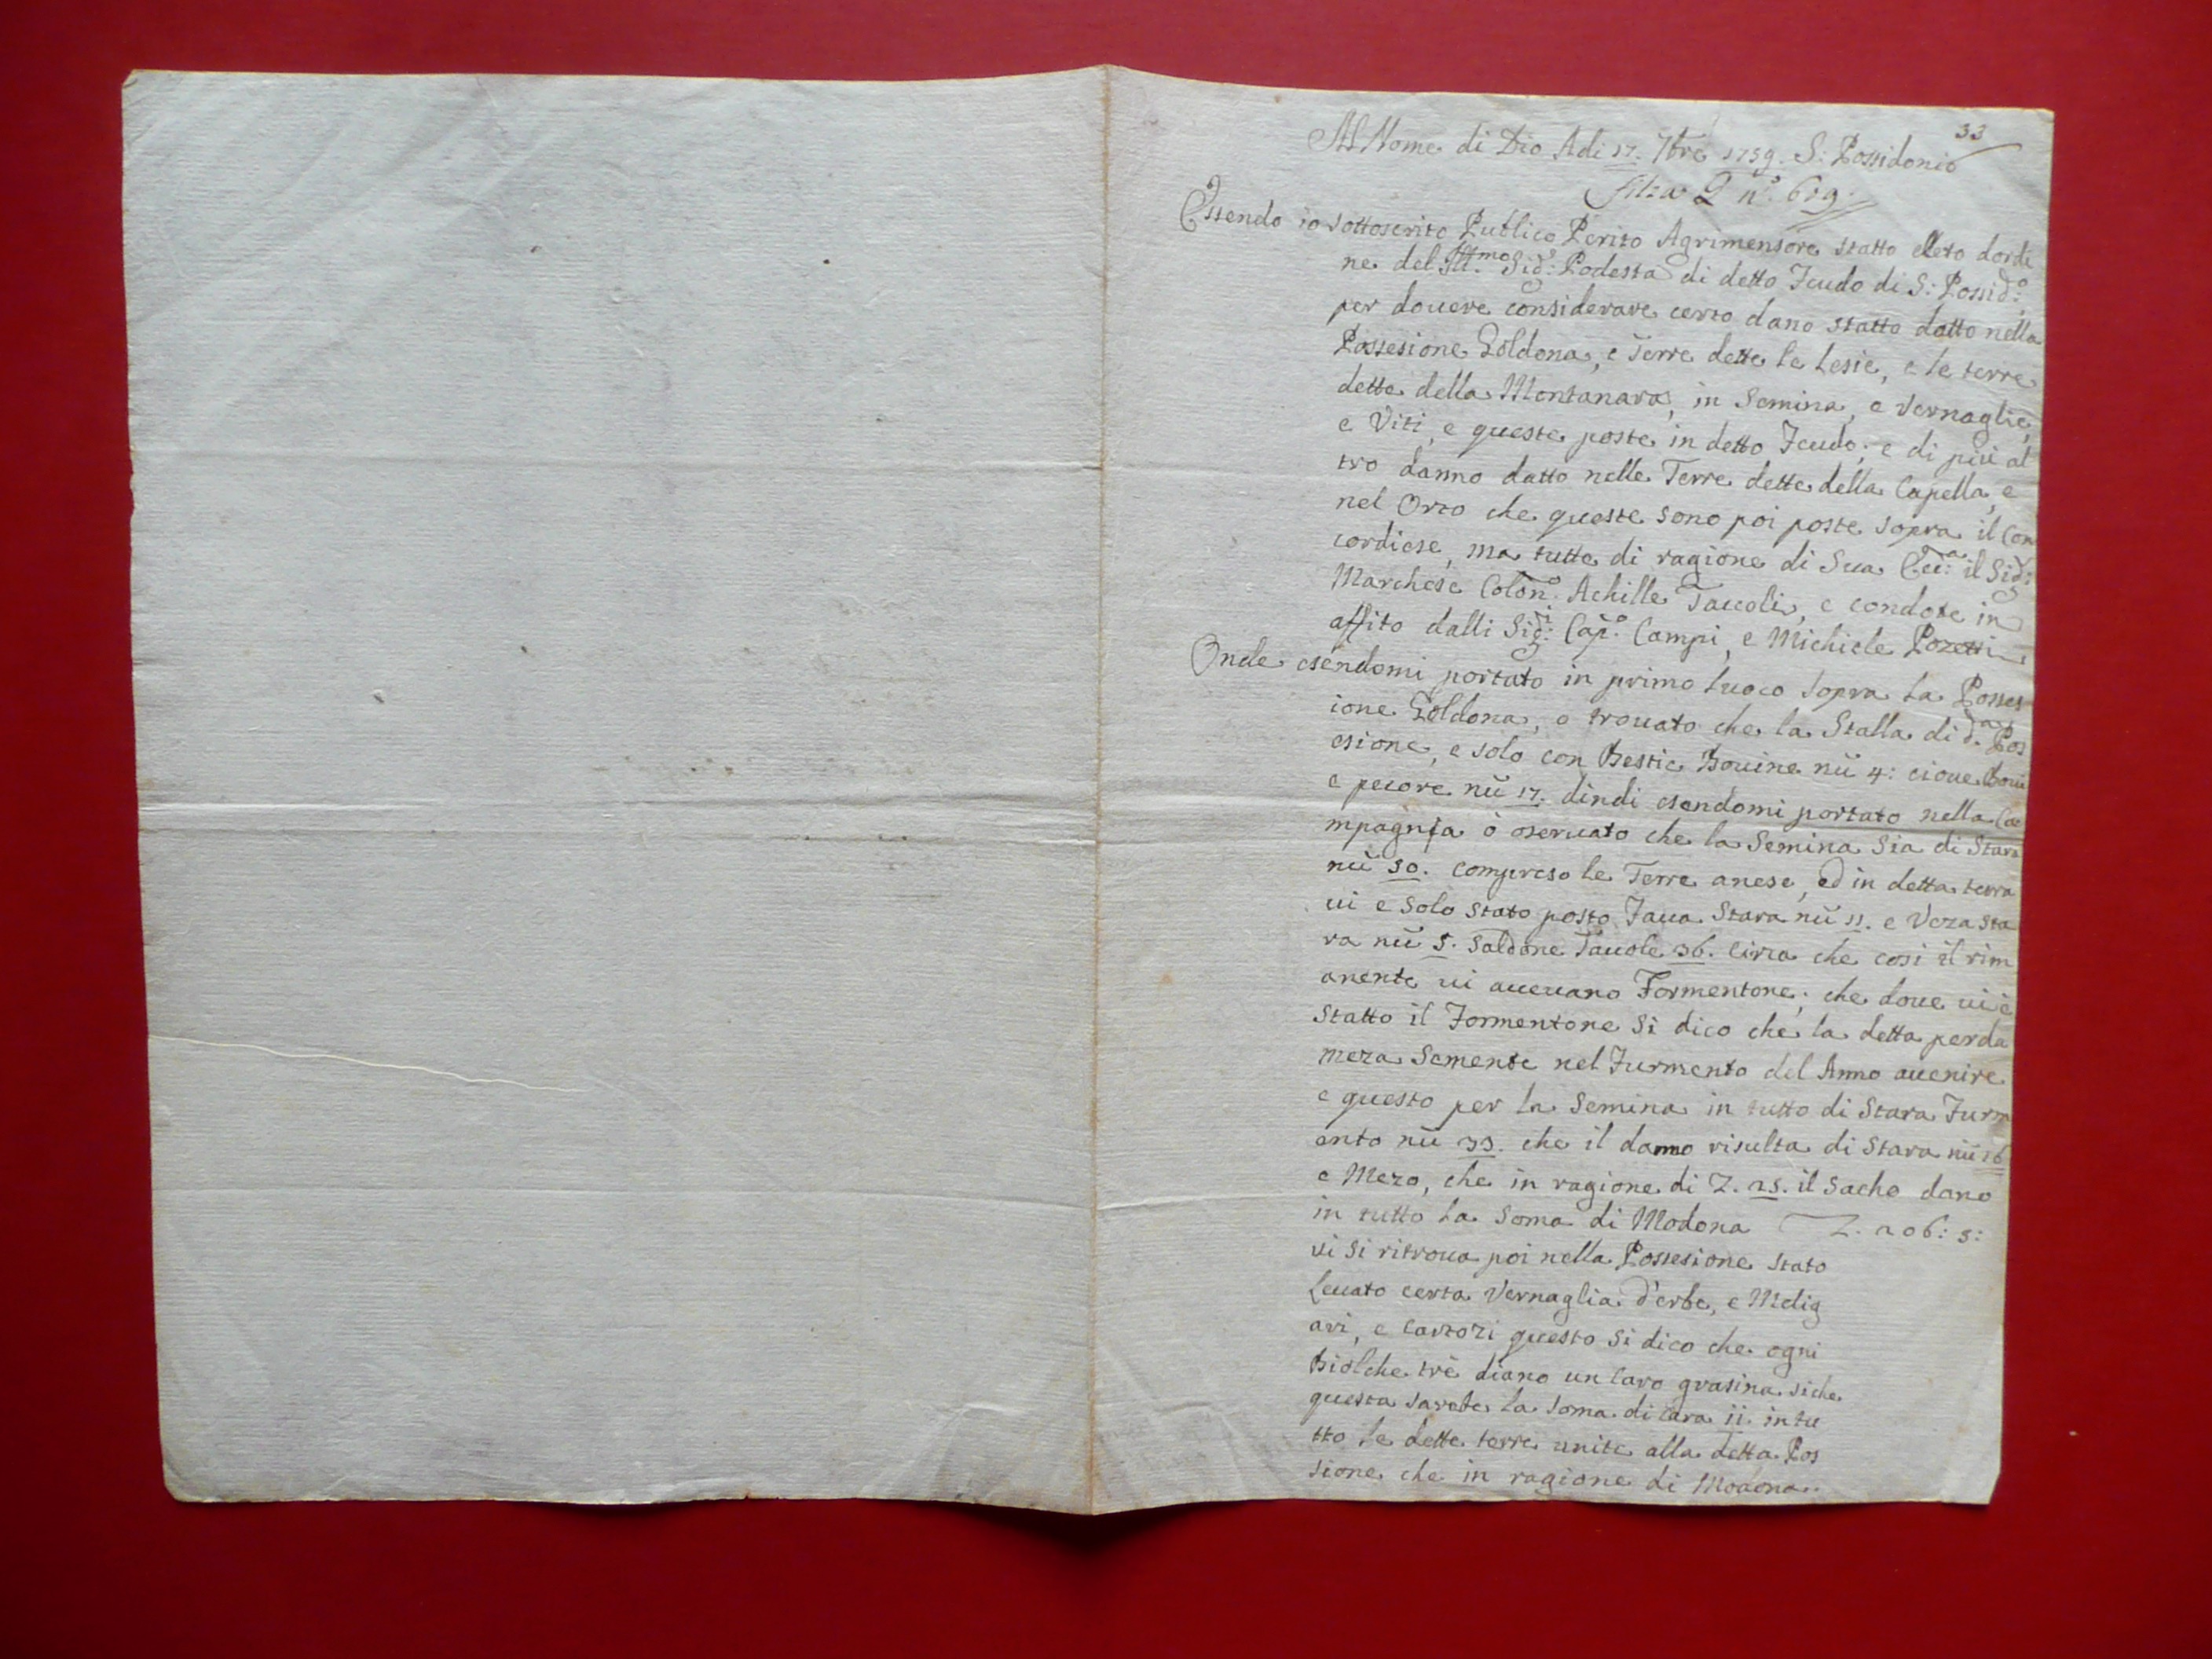 33
Al Nome di Dio Adi 17. 7bre 1759. S: Possidonio
Filza Q n.° 619.
Essendo io sottoscrito Publico Perito Agrimensore statto elleto dordi
ne del Ill.mo Sig:r Podesta di detto Feudo di S: Possid:o
per douere considerare certo dano statto datto nella
Possesione Goldona, e Terre dette le Lesie, e le terre
dette della Montanara, in Semina, e Vernaglie,
e Viti, e queste poste in detto Feudo; e di più al
tro danno datto nelle Terre dette della Capella, e
nel Orto che queste sono poi poste sopra il Con
cordiese, ma tutte di ragione di Sua Ecc:a il Sig:
Marchese Colon.o Achille Tacoli, e condote in
affito dalli Sig:i Cap.o Campi, e Michiele Pozetti
Onde esendomi portato in primo Luoco sopra La Posses
ione Goldona, o trouato che la Stalla di d.a Pos
esione, e solo con Bestie Bouine nū 4: cioue Boui
e pecore nū 17. dindi esendomi portato nella Ca
mpagnia ò oseruato che la Semina Sia di Stara
nū 50. compreso le Terre anese, ed in detta terra
ui e solo stato posto Faua Stara nū 11. e Veza Sta
ra nū 5. Saldone Tauole 36. circa che cosi il rim
anente ui aueuano Formentone; che doue ui è
Statto il Formentone Si dico che la detta perda
meza Semente nel Furmento del Anno auenire
e questo per la Semina in tutto di Stara Furm
ento nū 33. che il danno risulta di Stara nū 16
e Mezo, che in ragione di L. 25. il Sacho dano
in tutto la Soma di Modona L. 206: 5:
ui Si ritroua poi nella Possesione Stato
Leuato certa Vernaglia d'erbe, e Melig
ari, e Cartozi questo Si dico che ogni
Biolche trè diano un Caro grasina siche
questa sarebe la Soma di Cara 11. in tu
tto le dette terre unite alla detta Pos
sione che in ragione di Modona